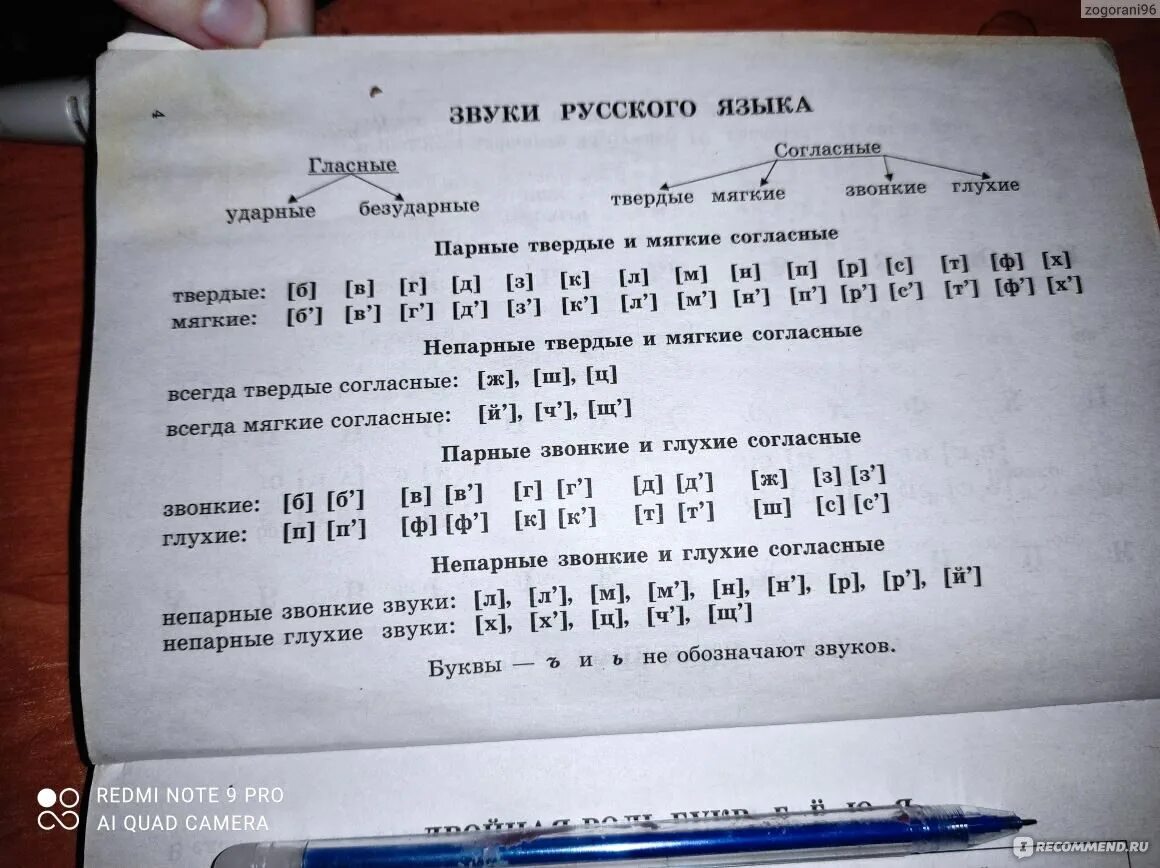 zogorani96
4
ЗВУКИ РУССКОГО ЯЗЫКА
Гласные
Согласные
ударные безударные
твердые мягкие звонкие глухие
Парные твердые и мягкие согласные
твердые: [б] [в] [г] [д] [з] [к] [л] [м] [н] [п] [р] [с] [т] [ф] [х]
мягкие: [б’] [в’] [г’] [д’] [з’] [к’] [л’] [м’] [н’] [п’] [р’] [с’] [т’] [ф’] [х’]
Непарные твердые и мягкие согласные
всегда твердые согласные: [ж], [ш], [ц]
всегда мягкие согласные: [й’], [ч’], [щ’]
Парные звонкие и глухие согласные
звонкие: [б] [б’] [в] [в’] [г] [г’] [д] [д’] [ж] [з] [з’]
глухие: [п] [п’] [ф] [ф’] [к] [к’] [т] [т’] [ш] [с] [с’]
Непарные звонкие и глухие согласные
непарные звонкие звуки: [л], [л’], [м], [м’], [н], [н’], [р], [р’], [й’]
непарные глухие звуки: [х], [х’], [ц], [ч’], [щ’]
Буквы — ъ и ь не обозначают звуков.
ДВОЙНАЯ РОЛЬ БУКВ Е, Ё, Ю, Я
REDMI NOTE 9 PRO
AI QUAD CAMERA
RECOMMEND.RU